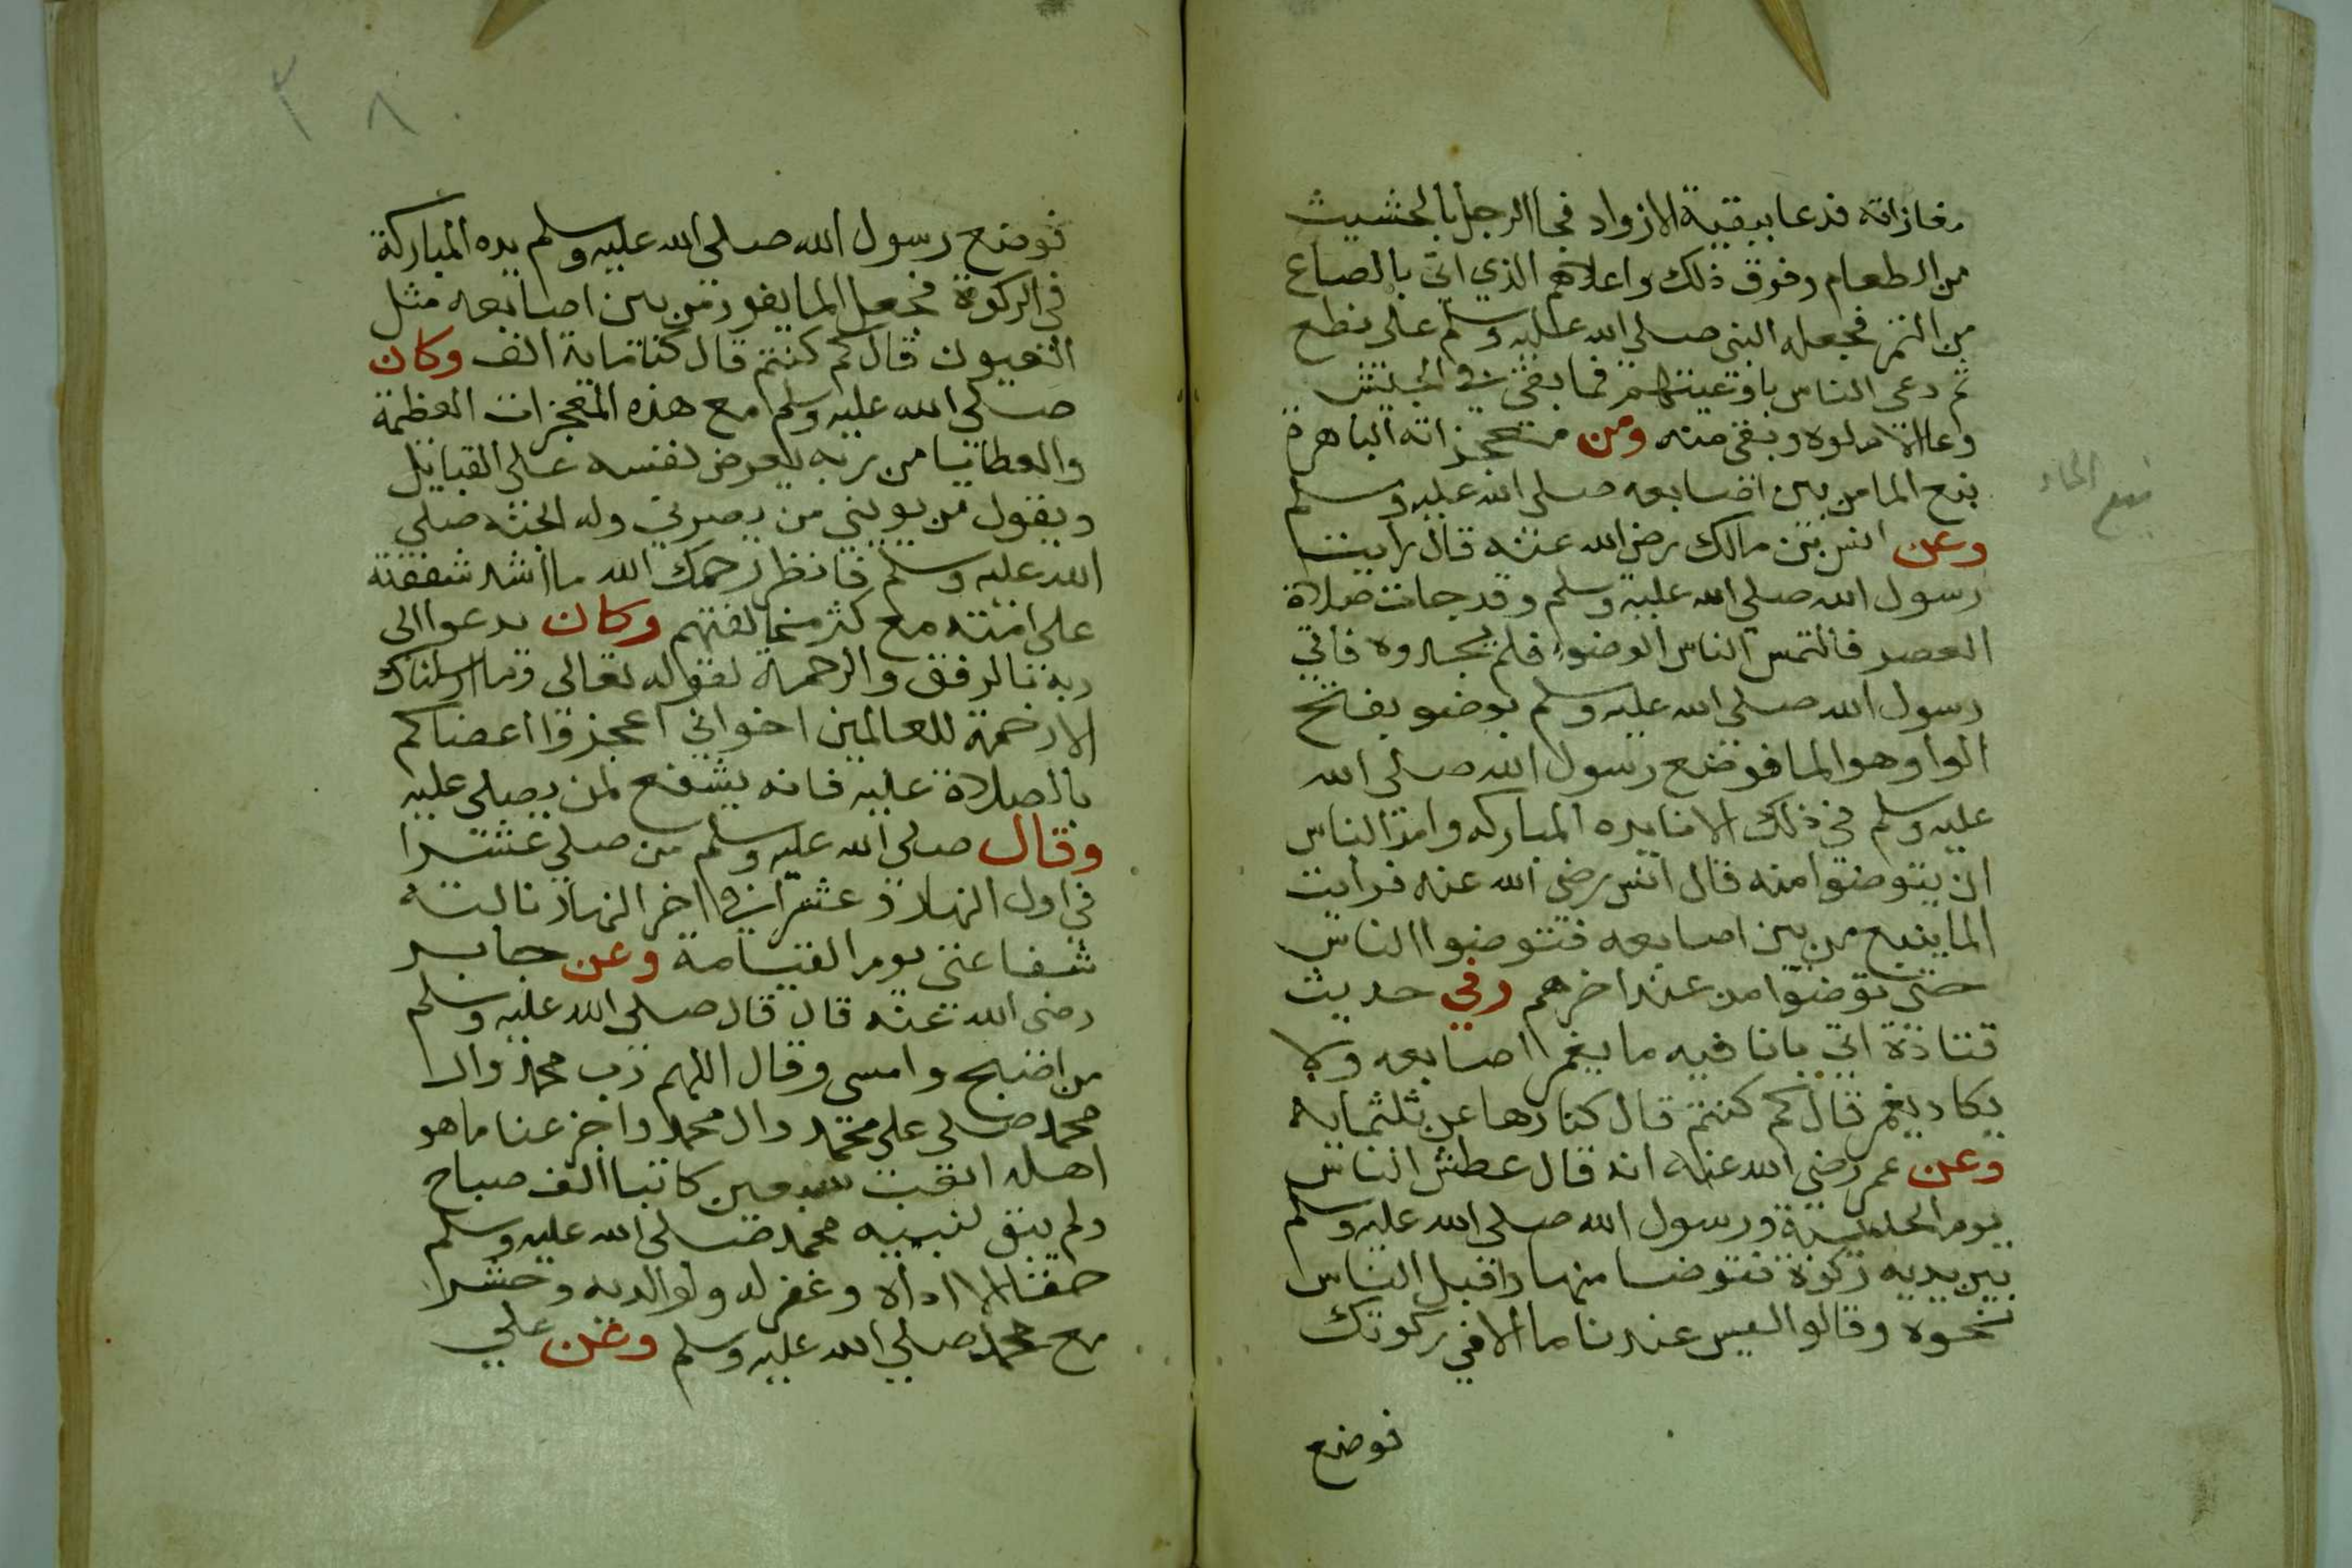 مغازاته فدعا ببقية الازواد فجا الرجل بالحشيث
من الطعام وفوق ذلك واعلاهم الذي اتى بالصاع
من التمر فجعله النبي صلى الله عليه وسلم على نطع
ثم دعى الناس باوعيتهم فما بقى في الجيش
وعا الا ملوه وبقى منه ومن معجزاته الباهرة
نبع الما من بين اصابعه صلى الله عليه وسلم
وعن انس بن مالك رضى الله عنه قال رايت
رسول الله صلى الله عليه وسلم وقد حانت صلاة
العصر فالتمس الناس الوضوء فلم يجدوه فاتي
رسول الله صلى الله عليه وسلم بوضو بفتح
الواو هو الما فوضع رسول الله صلى الله
عليه وسلم في ذلك الانا يده المباركه وامر الناس
ان يتوضوا منه قال انس رضى الله عنه فرايت
الما ينبع من بين اصابعه فتوضوا الناس
حتى توضوا من عند اخرهم وفي حديث
قتادة اتي بانا فيه ما يغمر اصابعه ولا
يكاد يغمر قال كم كنتم قال كنا زهاعن ثلثمايه
وعن عمر رضى الله عنه انه قال عطش الناس
يوم الحديبية ورسول الله صلى الله عليه وسلم
بين يديه ركوة فتوضا منها واقبل الناس
نحوه وقالوا ليس عندنا ما الا في ركوتك
فوضع
نبع الماء
فوضع رسول الله صلى الله عليه وسلم يده المباركة
في الركوة فجعل الما يفور من بين اصابعه مثل
العيون قال كم كنتم قال كنا ماية الف وكان
صلى الله عليه وسلم مع هذه المعجزات العظمة
والعطايا من ربه يعرض نفسه على القبايل
ويقول من يوينى من يصرني وله الجنه صلى
الله عليه وسلم فانظر رحمك الله ما اشد شفقته
على امته مع كثر مخالفتهم وكان يدعوا الى
ربه بالرفق والرحمة لقوله تعالى وما ارسلناك
الا رحمة للعالمين اخواني اعجزوا اعضاكم
بالصلاة عليه فانه يشفع لمن يصلى عليه
وقال صلى الله عليه وسلم من صلى عشرا
في اول النهار وعشرا في اخر النهار نالته
شفاعتى يوم القيامة وعن جابر
رضى الله عنه قال قال صلى الله عليه وسلم
من اصبح وامسى وقال اللهم رب محمد وال
محمد صلى على محمد وال محمد واجز عنا ما هو
اهله اتعبت سبعين كاتبا الف صباح
ولم يبق لنبيه محمد صلى الله عليه وسلم
حقا الا اداه وغفر له ولوالديه وحشر
مع محمد صلى الله عليه وسلم وعن علي